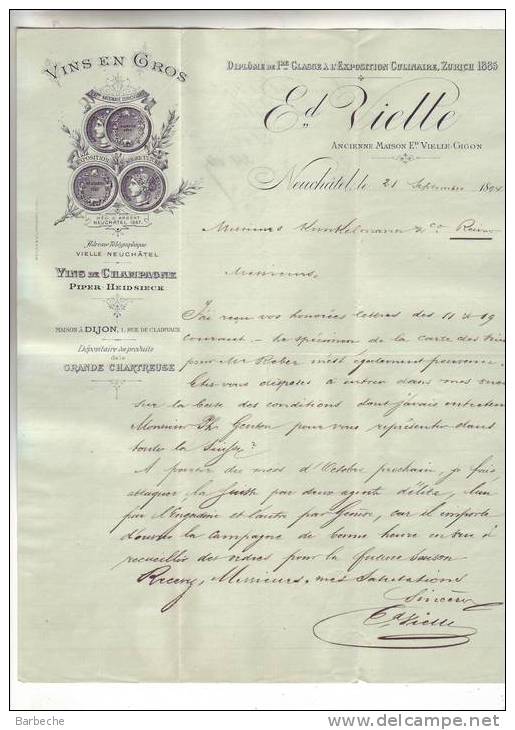 VINS EN GROS
DIPLÔME DE 1re CLASSE À L'EXPOSITION CULINAIRE, ZURICH 1885
Ed Vielle
ANCIENNE MAISON Ed VIELLE-GIGON
Neuchâtel, le 21 Septembre 18
MÉD. D'ARGENT
NEUCHÂTEL 1887.
Adresse Télégraphique
VIELLE NEUCHÂTEL
VINS DE CHAMPAGNE
PIPER-HEIDSIECK
MAISON À DIJON, 1, RUE DE CLAIRVAUX
Dépositaire des produits
de la
GRANDE CHARTREUSE
Messieurs Kunkelmann & Co Reims
Messieurs.
J'ai reçu vos honorées lettres des 11 & 19
courant - le spécimen de la carte des Vins
pour Mr Rober m'est également parvenu.
Etes-vous disposés à entrer dans mes vues
sur la base des conditions dont j'avais entretenu
Monsieur Ph. pour vous représenter dans
toute la Suisse?
A partir du mois d'Octobre prochain, je fais
attaquer la Suisse par deux agents d'élite, l'un
par l'Engadine et l'autre par Genève, car il importe
d'ouvrir la campagne de bonne heure en vue à
recueillir des ordres pour la future saison
Recevez, Messieurs, mes Salutations
Sincères
Ed Vielle
Barbeche
delcampe.net